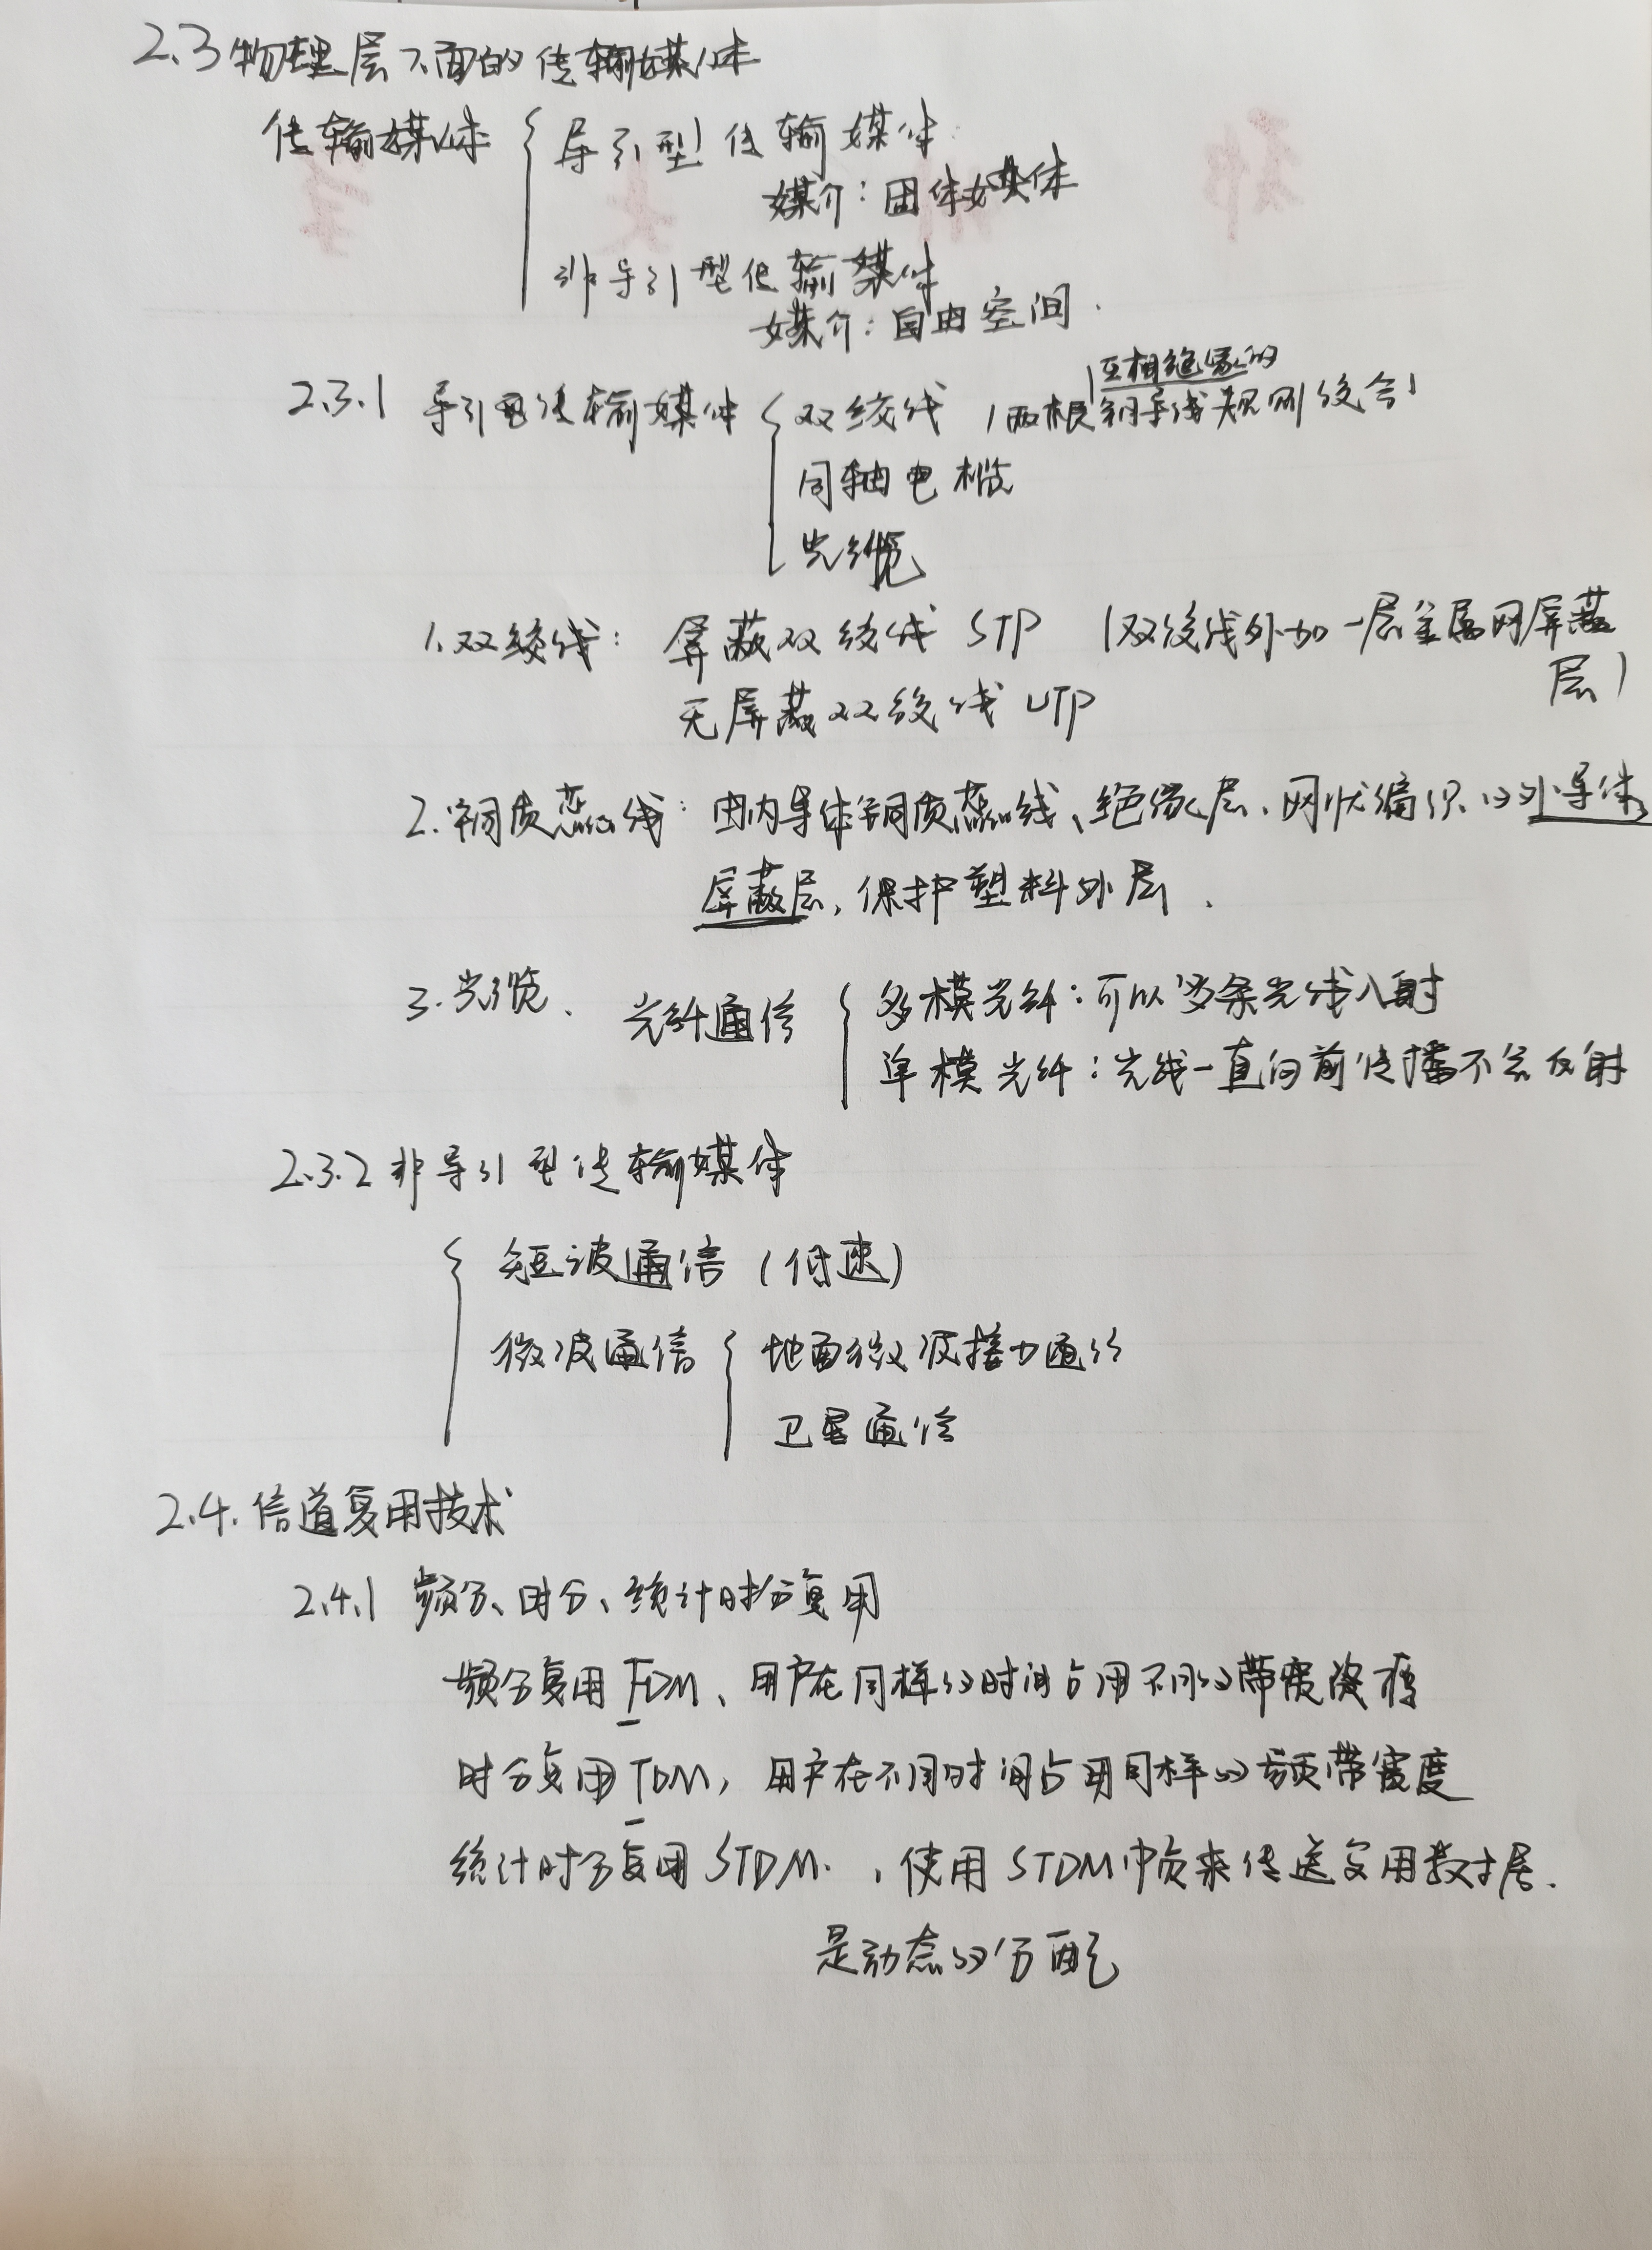 2.3 物理层下面的传输媒体
传输媒体 { 导引型传输媒体:
媒介:固体媒体
非导引型传输媒体
媒介:自由空间.
2.3.1 导引型传输媒体 { 双绞线 (两根互相绝缘的铜导线规则绞合)
同轴电缆
光缆
1.双绞线: 屏蔽双绞线 STP (双绞线外加一层金属网屏蔽
层)
无屏蔽双绞线 UTP
2.铜质芯线: 由内导体铜质芯线、绝缘层、网状编织的外导体
屏蔽层,保护塑料外层.
3.光缆、 光纤通信 { 多模光纤:可以多条光线入射
单模光纤:光线一直向前传播不会反射
2.3.2 非导引型传输媒体
{ 短波通信 (低速)
微波通信 { 地面微波接力通信
卫星通信
2.4.信道复用技术
2.4.1 频分、时分、统计时分复用
频分复用 FDM、用户在同样的时间占用不同的带宽资源
时分复用 TDM, 用户在不同时间占用同样的频带宽度
统计时分复用 STDM. ,使用 STDM 帧来传送复用数据.
是动态的分配